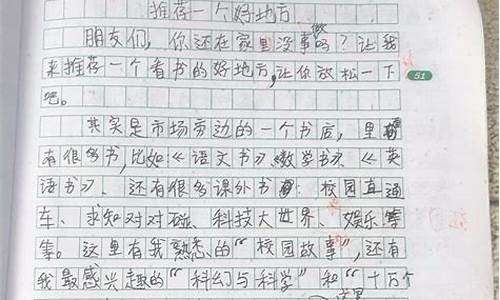 推荐一个好地方
朋友们,你还在家里没事做吗?让我
来推荐一个看书的好地方,让你放松一下
51
吧。
其实是市场旁边的一个书店,里
有很多书,比如《语文书》《数学书》、《英
语书》、还有很多课外书:校园直通
车、求知对对碰、科技大世界、娱乐等
等。这里有我熟悉的“校园故事”,还有
我最感兴趣的“科幻与科学”和“十万个